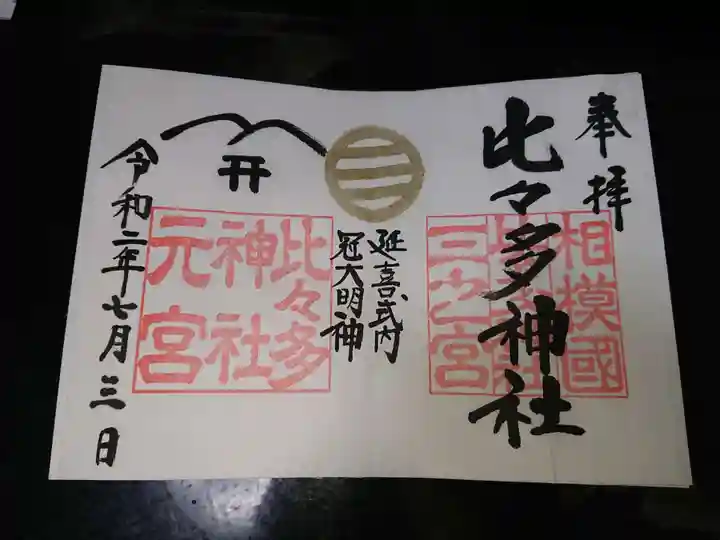 奉拝
相模國
比々多神社
三之宮
延喜式内
冠大明神
比々多
神社
元宮
令和二年七月三日